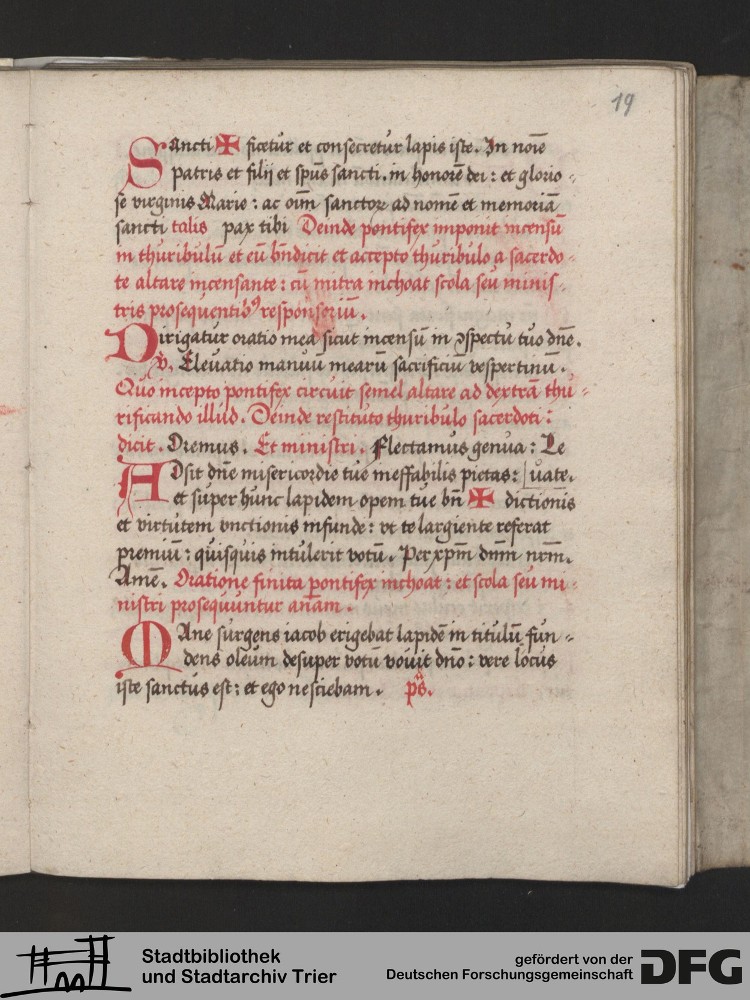 19
Sancti ✠ ficetur et consecretur lapis iste. In noīe
patris et filij et spūs sancti. in honorē dei : et glorio-
se virginis Marie : ac oīm sanctoꝝ ad nomē et memoriā
sancti talis pax tibi Deinde pontifex imponit incensū
in thuribulū et eū bn̄dicit et accepto thuribulo a sacerdo-
te altare incensante : cū mitra inchoat scola seu minis-
tris prosequentibꝰ responsoriū.
Dirigatur oratio mea sicut incensū in ↄspectu tuo dn̄e.
v. Eleuatio manuū mearū sacrificiū vespertinū.
Quo incepto pontifex circuit semel altare ad dextrā thu-
rificando illud. Deinde restituto thuribulo sacerdoti :
dicit. Oremus. Et ministri. Flectamus genua : Le
Adsit dn̄e misericordie tue ineffabilis pietas : uate.
et super hunc lapidem opem tue bn̄ ✠ dictionis
et virtutem vnctionis infunde : vt te largiente referat
premiū : quisquis intulerit votū. Per xp̄m dn̄m nr̄m.
Amē. Oratione finita pontifex inchoat : et scola seu mi-
nistri prosequuntur an̄am.
Mane surgens iacob erigebat lapidē in titulū fun-
dens oleum desuper votū vouit dn̄o : vere locus
iste sanctus est : et ego nesciebam. ps.
Stadtbibliothek
und Stadtarchiv Trier
gefördert von der
Deutschen Forschungsgemeinschaft
DFG